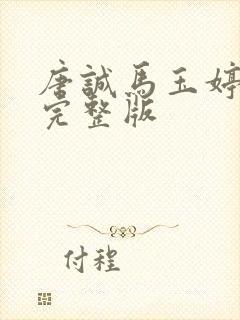 唐誠馬玉婷
完整版
付程